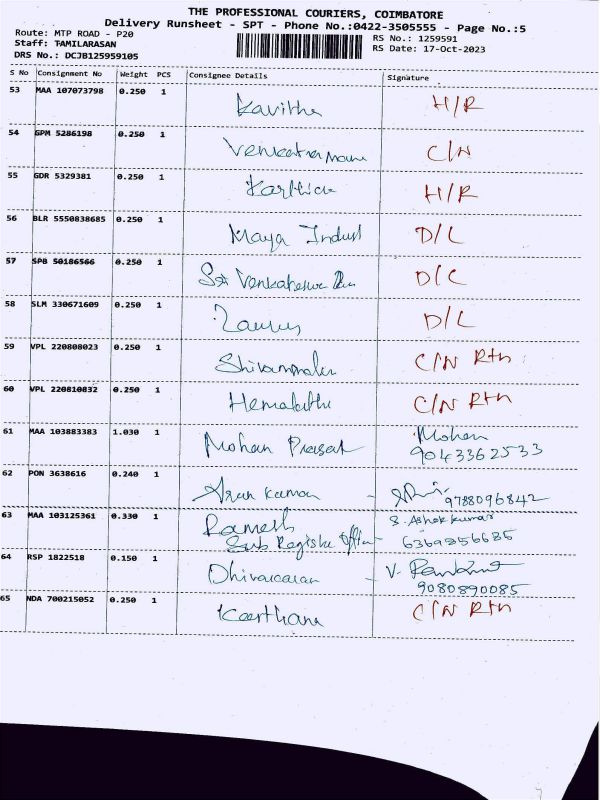 THE PROFESSIONAL COURIERS, COIMBATORE
Delivery Runsheet - SPT - Phone No.:0422-3505555 - Page No.:5
Route: MTP ROAD - P20
Staff: TAMILARASAN
DRS No.: DCJB125959105
RS No.: 1259591
RS Date: 17-Oct-2023
S No Consignment No Weight PCS Consignee Details Signature
53 MAA 107073798 0.250 1 Kavitha H/R
54 GPM 5286198 0.250 1 Venkatramanan C/N
55 GDR 5329381 0.250 1 Karthick H/R
56 BLR 5550838685 0.250 1 Maya Indust D/L
57 SPB 50186566 0.250 1 Sri Venkateswara D/L
58 SLM 330671609 0.250 1 Taurus D/L
59 VPL 220808023 0.250 1 C/N Rtn
60 VPL 220810832 0.250 1 Hemalatha C/N Rtn
61 MAA 103883383 1.030 1 Mohan Prasat Mohan
9043362533
62 PON 3638616 0.240 1 Arun Kumar -
9788096842
63 MAA 103125361 0.330 1 Ramesh S. Ashok Kumar
Sub Register Office 6369856685
64 RSP 1822518 0.150 1 Dhivakaran - V.
9080890085
65 NDA 700215052 0.250 1 Keerthana C/N Rtn